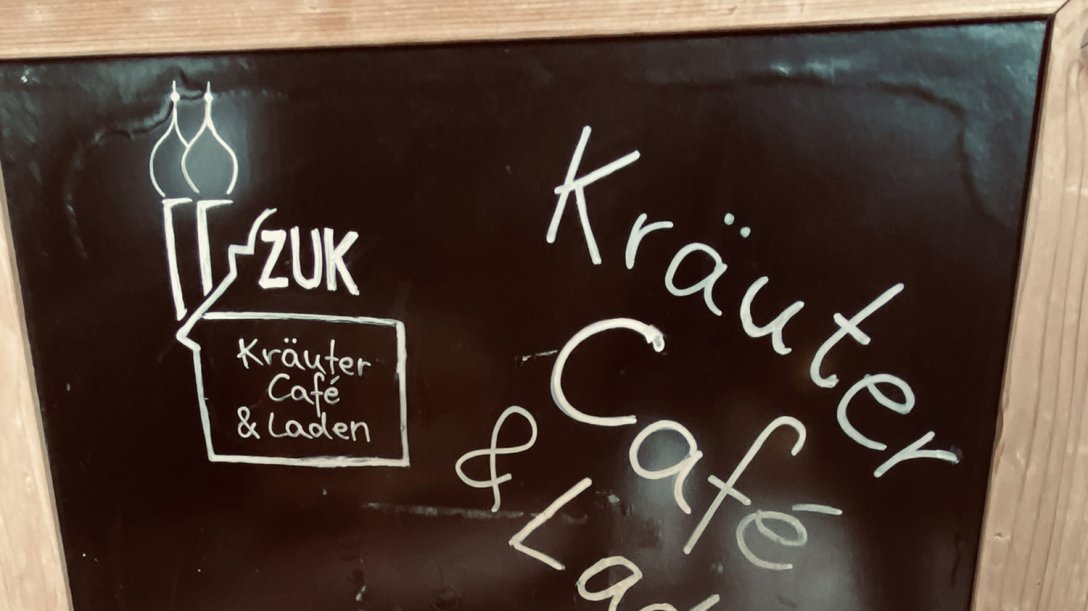 ZUK
Kräuter
Café
& Laden
Kräuter
Café
& Lad